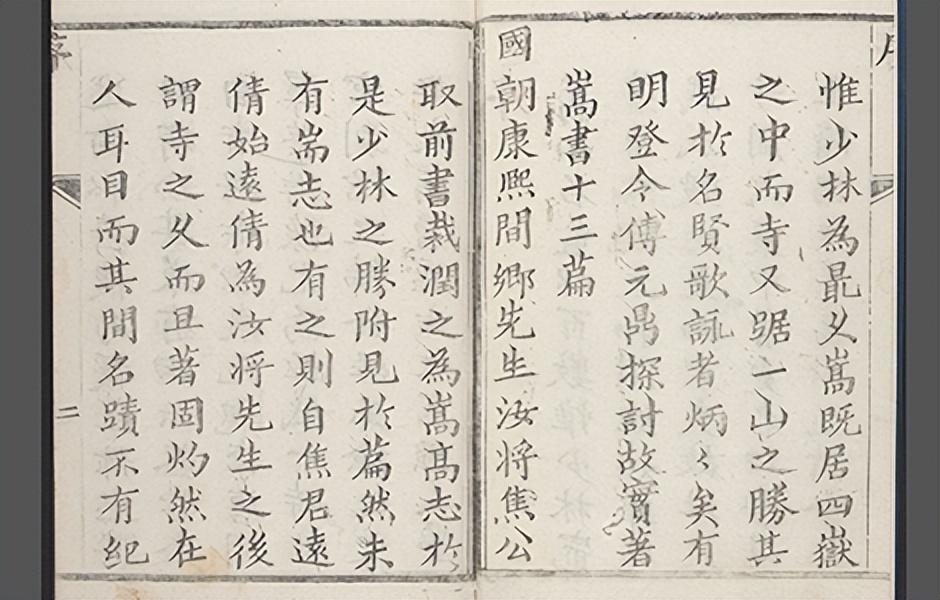 惟少林為最久嵩既居四嶽
之中而寺又踞一山之勝其
見於名賢歌詠者炳〻矣有
明登令傅元鼎探討故實著
嵩書十三篇
國朝康熙間鄉先生汝將焦公
取前書裁潤之為嵩高志於
是少林之勝附見於篇然未
有耑志也有之則自焦君遠
倩始遠倩為汝將先生之後
謂寺之久而且著固灼然在
人耳目而其間名蹟不有紀
二